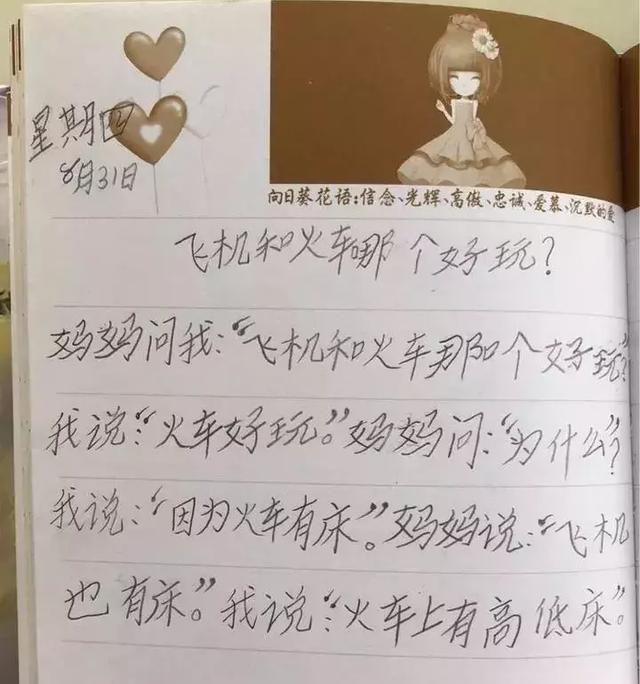 星期四
8月31日
向日葵花语:信念、光辉、高傲、忠诚、爱慕、沉默的爱
飞机和火车哪个好玩?
妈妈问我:“飞机和火车那个好玩”?
我说:“火车好玩。”妈妈问:“为什么”?
我说:“因为火车有床”。妈妈说:“飞机
也有床。”我说:“火车上有高低床”。